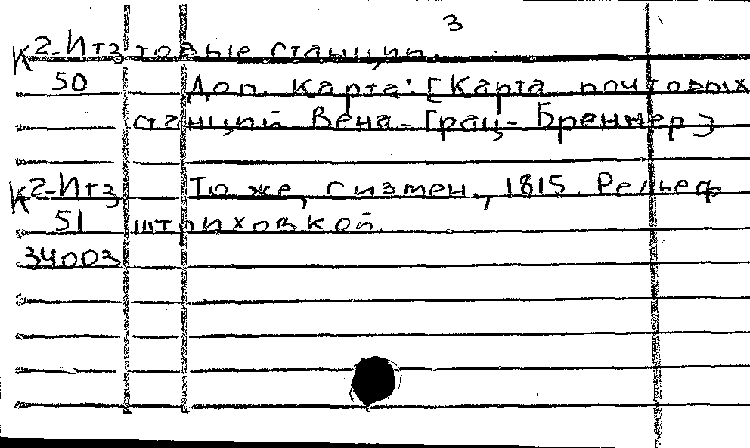 3
К 2-Итз товые станции.
50 Доп. карта: [Карта почтовых
станций Вена-Грац-Бреннер]
К 2-Итз То же, с измен., 1815. Рельеф
51 штриховкой.
34003